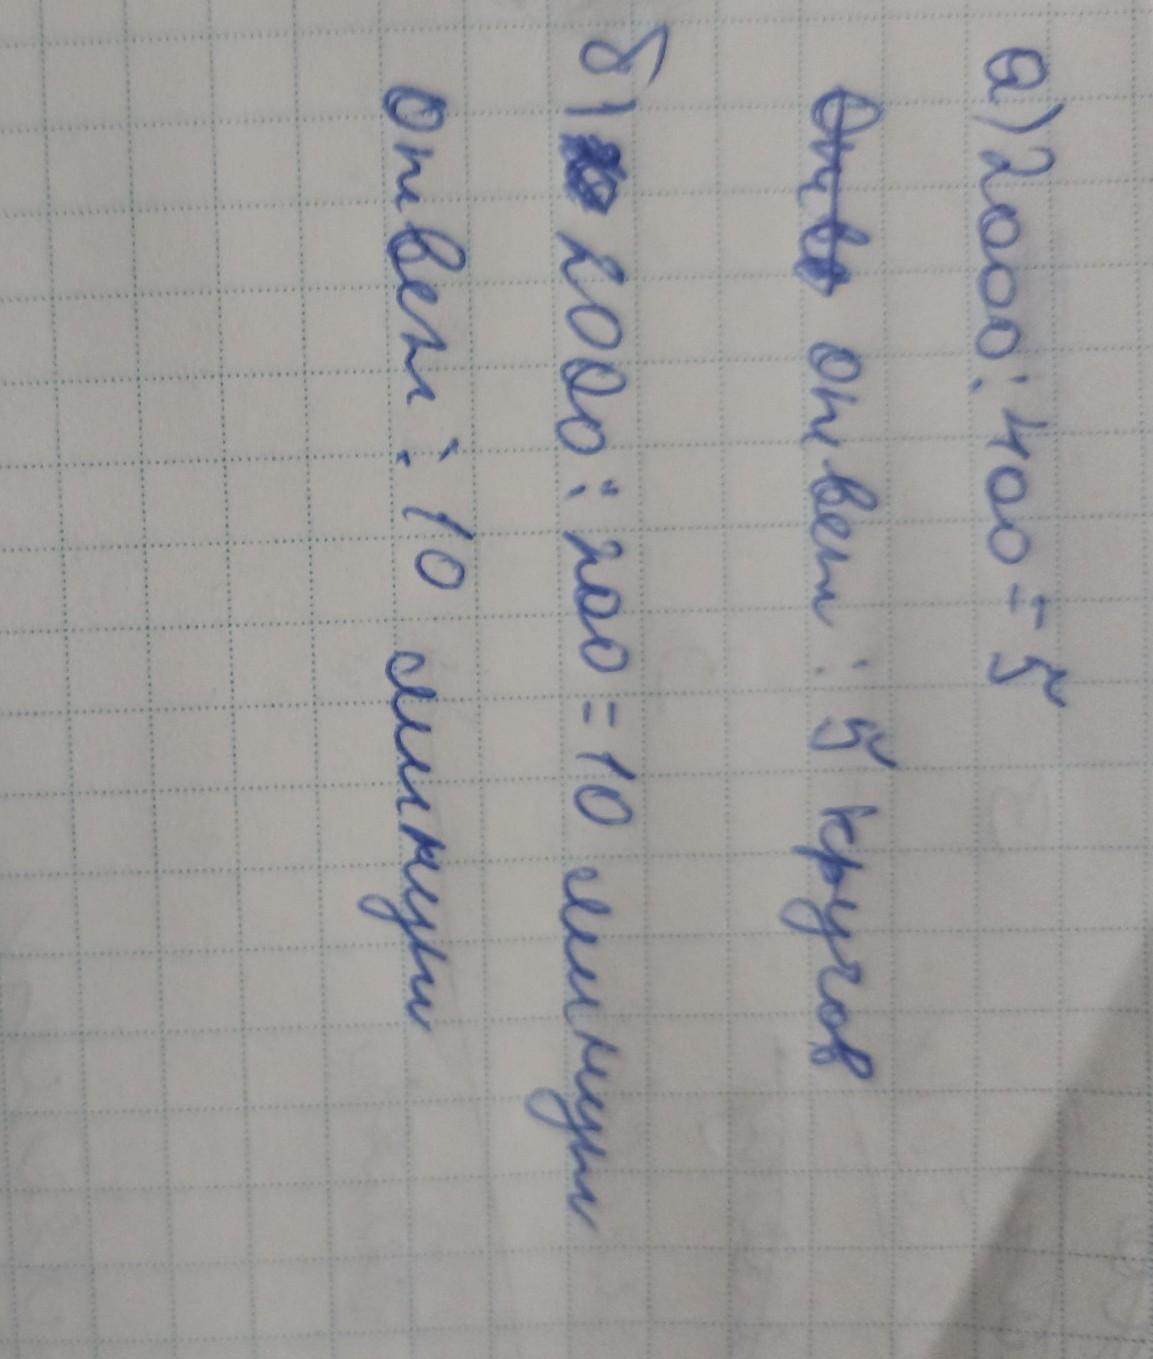 а) 2000:400=5
ответ: 5 кругов
б) 2000:200=10 минут
Ответ: 10 минут